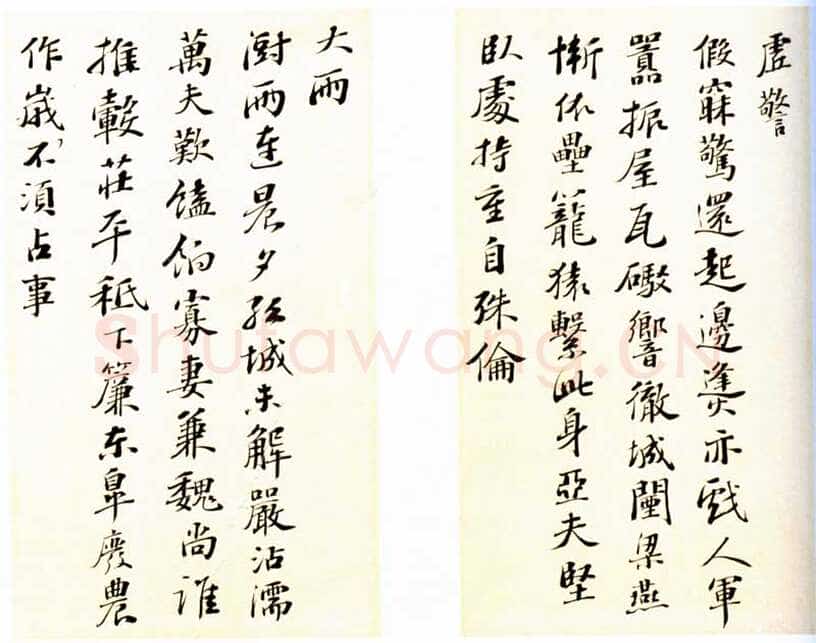 虛警
假寐驚還起邊逢亦戲人軍
囂振屋瓦礮響徹城闉梁燕
慚依壘籠猿繫此身亞夫堅
臥處持重自殊倫
大雨
澍雨連晨夕孤城未解嚴沾濡
萬夫歎饁餉寡妻兼魏尚誰
推轂莊平秪下簾東皐廢農
作歲不須占事
Shufawang.CN